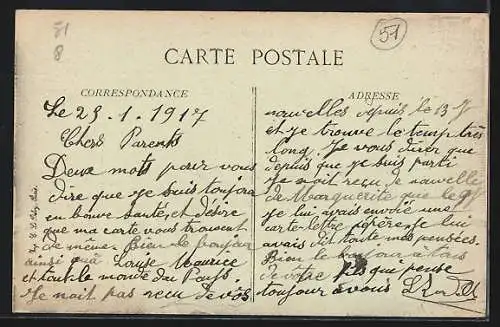 51
8
51
CARTE POSTALE
CORRESPONDANCE
ADRESSE
Le 25 . 1 . 1917
Chers Parents
Deux mots pour vous
dire que je suis toujours
en bonne santé, et désire
que ma carte vous trouvent
de même Bien le bonjour
ainsi qu'à Louise Maurice
et tout le monde du Pays.
Je nait pas recu de vos
nouvelles depuis le 13 J
et je trouve le temp très
long. Je vous direr que
depuis que je suis parti
Je nait recu de nouvelle
de Marguerite que le
je lui avais envoié une
carte-lettre lui
avais dit toute mes pensées.
Bien le bonjour à tous
de votre fils qui pense
toujour a vous